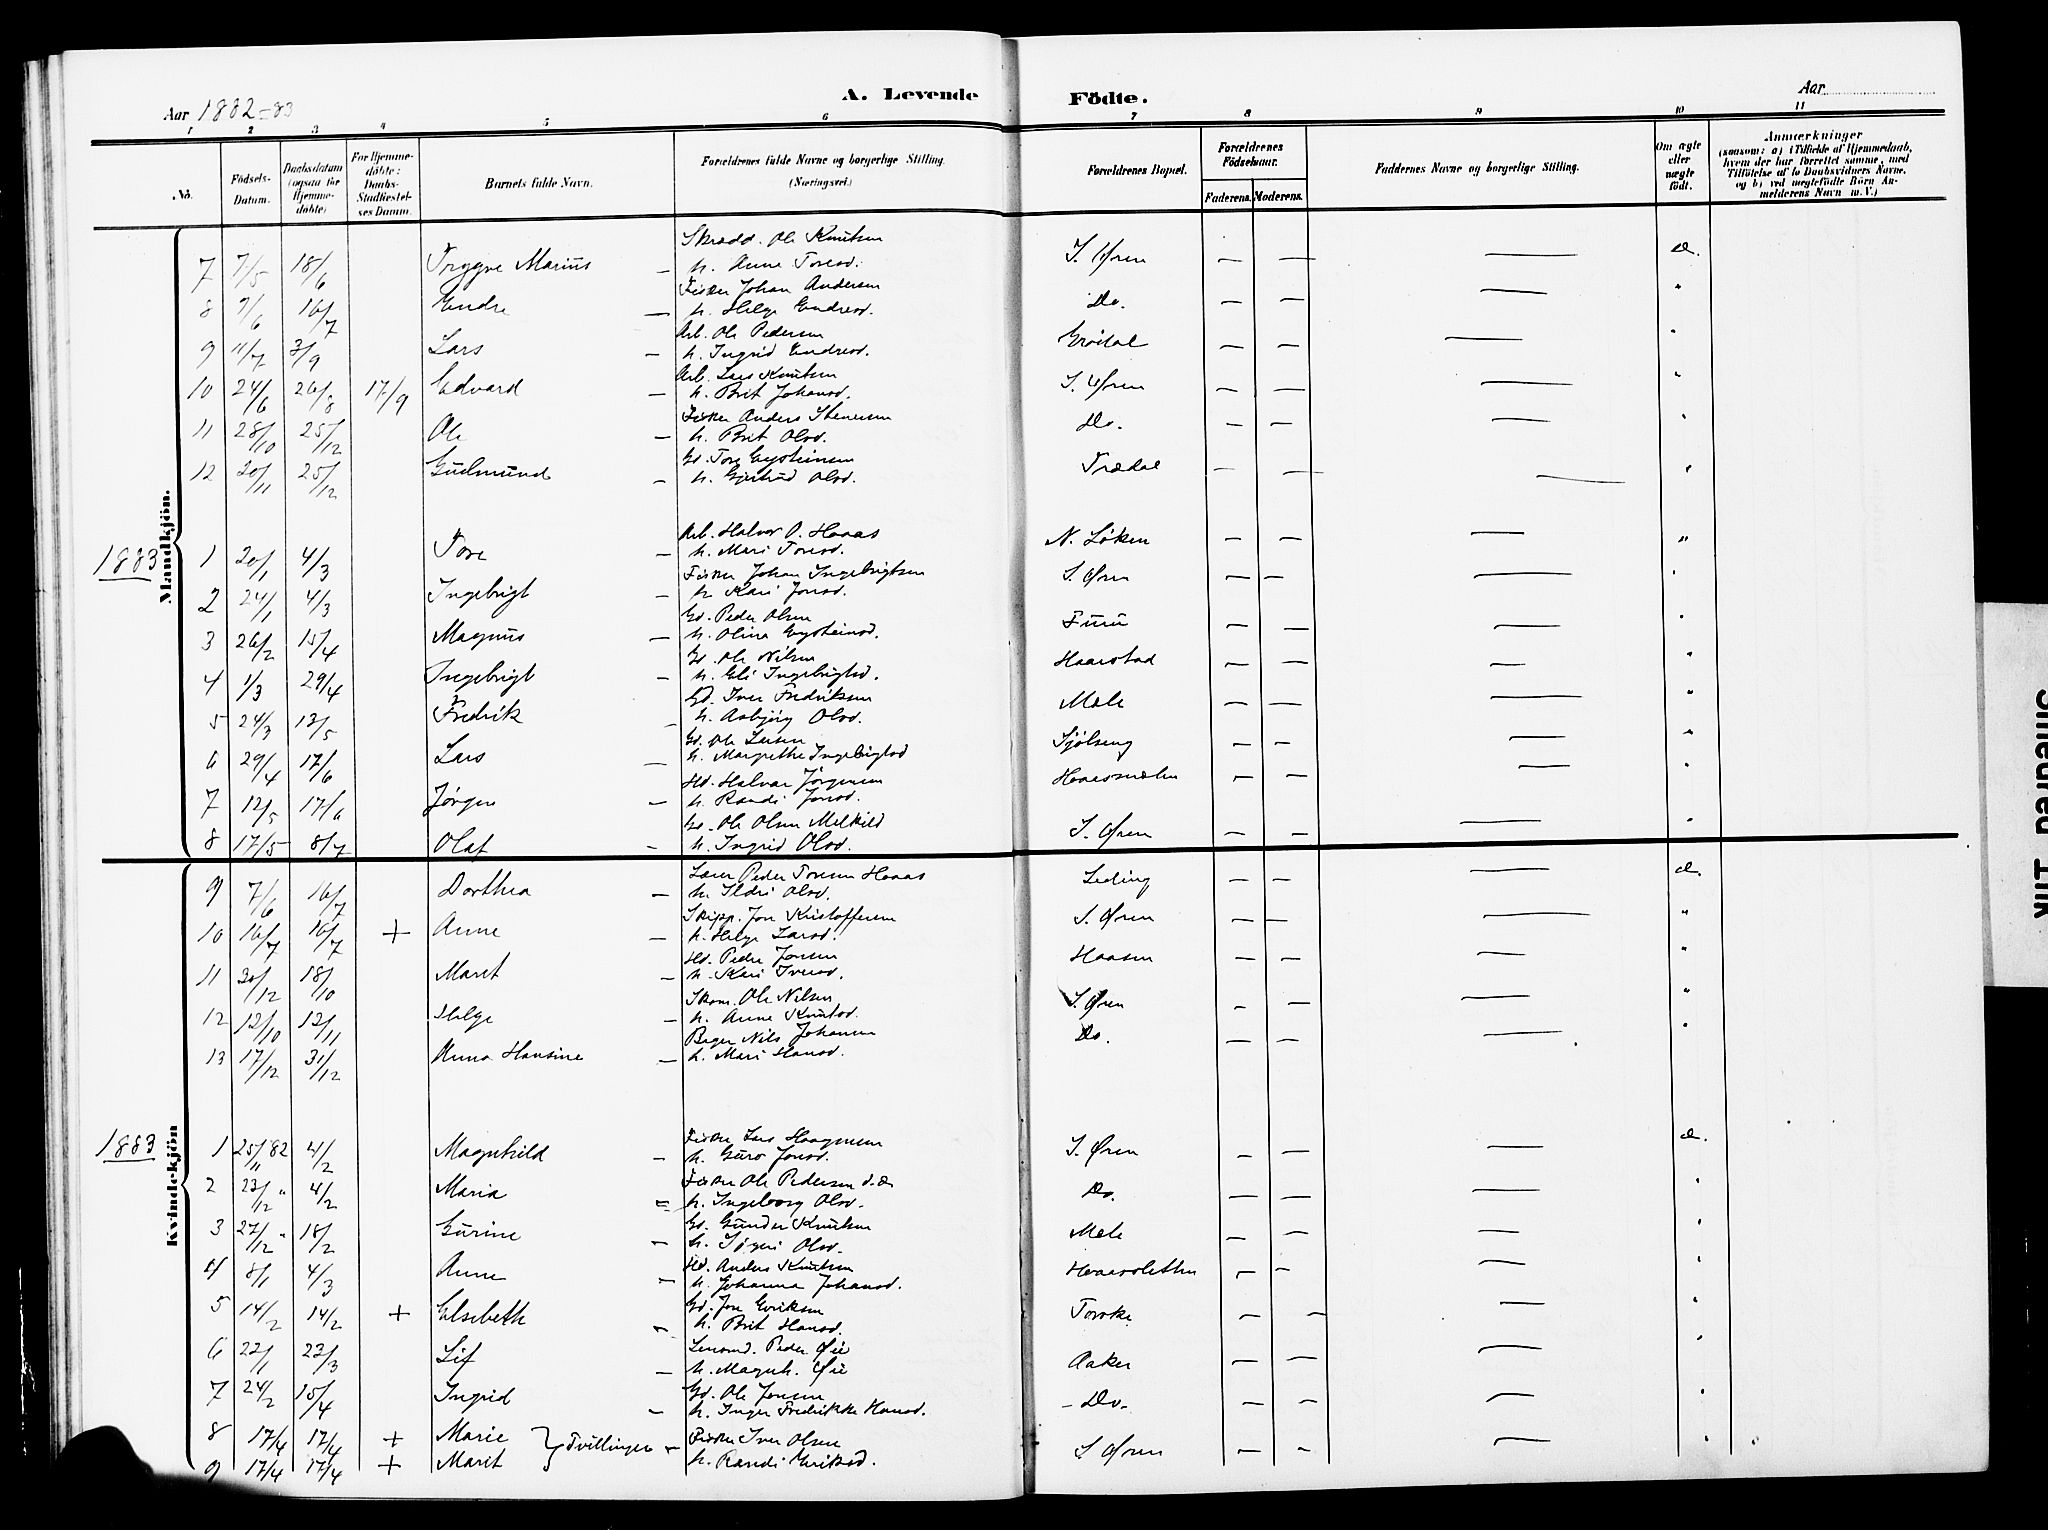 A. Levende Födte.
Aar 1882-83
Aar
1 2 3 4 5 6 7 8 9 10 11
No.
Födsels-Datum.
Daabsdatum (ogsaa for Hjemmedöbte)
For Hjemmedöbte: Daabs-Stadfæstelses Datum.
Barnets fulde Navn.
Forældrenes fulde Navne og borgerlige Stilling. (Næringsvei.)
Forældrenes Bopæl.
Forældrenes Födselsaar.
Faderens. Moderens.
Faddernes Navne og borgerlige Stilling.
Om ægte eller uægte födt.
Anmærkninger (saasom: a) i Tilfælde af Hjemmedaab, hvem der har forrettet samme, med Tilföielse af to Daabsvidners Navne, og b) ved uægtefödte Börn Anmelderens Navn m. V.)
Mandkjön.
Skrædd. Ole Knutsen
7 7/5 18/6 Trygve Marius – h. Anne Toresd. S. Øren — — — Æ.
Fisker Johan Andersen
8 7/6 16/7 Endre – h. Helge Endresd. Do. — — — "
Arb. Ole Pedersen
9 11/7 3/9 Lars – h. Ingrid Endresd. Grøital — — — "
Arb. Lars Knutsen
10 24/6 26/8 17/9 Edvard – h. Brit Johansd. S. Øren — — — "
Fisker Anders Stenersen
11 28/10 25/12 Ole – h. Brit Olsd. Do. — — — "
Gd. Tore Eysteinsen
12 20/11 25/12 Gudmund – h. Gjertrud Olsd. Trædal — — — "
1883
Arb. Halvor O. Haaas
1 20/1 4/3 Tore – h. Mari Toresd. N. Løken — — — "
Fisker Johan Ingebrigtsen
2 24/1 4/3 Ingebrigt – h. Kari Jonsd. S. Øren — — — "
Gd. Peder Olsen
3 26/2 15/4 Magnus – h. Olina Eysteinsd. Furu — — — "
Gd. Ole Nilsen
4 1/3 29/4 Ingebrigt – h. Eli Ingebrigtsd. Haarstad — — — "
Gd. Iver Fredriksen
5 24/3 13/5 Fredrik – h. Asbjørg Olsd. Mæle — — — "
Gd. Ole Larsen
6 29/4 17/6 Lars – h. Margrethe Ingebrigtsd Sjølseng — — — "
Hd. Halvor Jørgensen
7 12/5 17/6 Jørgen – h. Randi Jonsd. Haasmælen — — — "
Gd. Ole Olsen Melkild
8 17/5 8/7 Olaf – h. Ingrid Olsd. S. Øren — — — "
Kvindekjön
Lærer Peder Toresen Haaas
9 7/6 16/7 Dorthea – h. Ildri Olsd. Leding — — — Æ.
Skipp. Jon Kristoffersen
10 16/7 16/7 + Anne – h. Helge Larsd. S. Øren — — — "
Hd. Peder Jonsen
11 30/12 18/10 Marit – h. Kari Iversd. Haasen — — — "
Skom. Ole Nilsen
12 12/10 12/11 Helge – h. Anne Knutsd. S. Øren — — — "
Bager Nils Johansen
13 17/12 31/12 Anna Hansine – h. Mari Hansd. Do. — — — "
1883
Fisker Lars Haagensen
1 25/11 82 4/2 Magnhild – h. Guro Jonsd. S. Øren — — — Æ.
Fisker Ole Pedersen d.æ
2 23/12 " 4/2 Maria = h. Ingeborg Olsd. Do. — — — "
Gd. Gunder Knutsen
3 27/12 " 18/2 Gurine – h. Sigri Olsd. Mæle — — — "
Hd. Anders Knutsen
4 8/1 4/3 Anne – h. Johanna Johansd. Haasslethen — — — "
Gd. Jon Eriksen
5 14/2 14/2 + Elsebeth – h. Brit Hansd. Torske — — — "
Lensmd. Peder Øie
6 22/1 23/3 Sif – h. Magnh. Øie Aaker — — — "
Gd. Ole Jonsen
7 24/2 15/4 Ingrid – h. Inger Fredrikke Hansd. – Do. — — — "
8 17/4 17/4 + Marie } Tvillinger – Fisker Iver Olsen S Øren — — — "
9 17/4 17/4 + Marit h. Randi Eriksd.